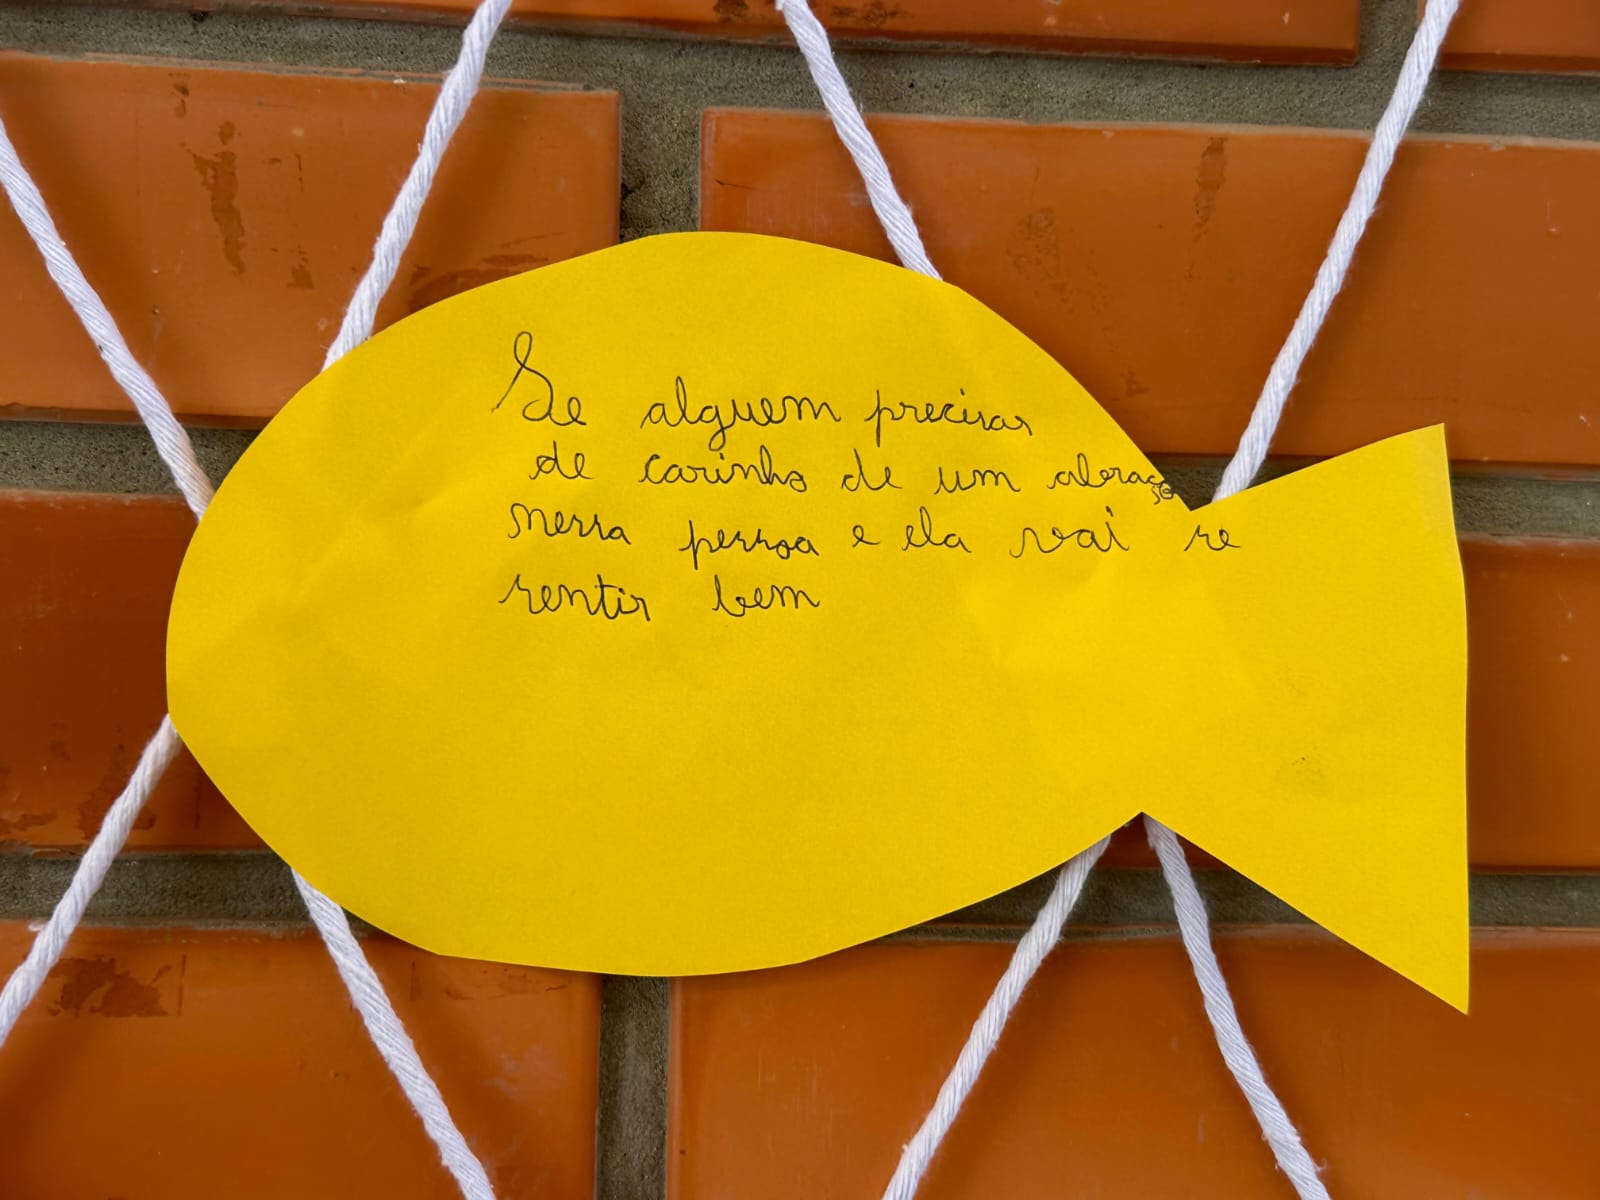 Se alguem precisar
de carinho de um abraço
nessa pessoa e ela vai se
sentir bem